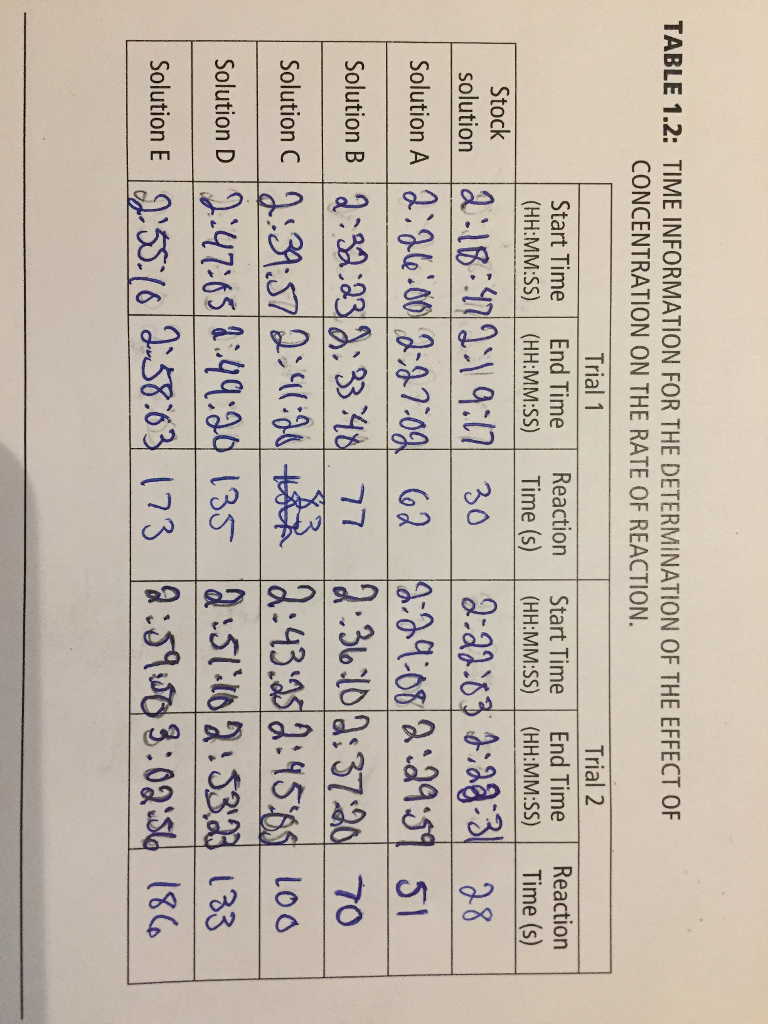 TABLE 1.2: TIME INFORMATION FOR THE DETERMINATION OF THE EFFECT OF
CONCENTRATION ON THE RATE OF REACTION.
Trial 1 Trial 2
Start Time (HH:MM:SS) End Time (HH:MM:SS) Reaction Time (s) Start Time (HH:MM:SS) End Time (HH:MM:SS) Reaction Time (s)
Stock solution 2:18:47 2:19:17 30 2:22:03 2:22:31 28
Solution A 2:26:00 2:27:02 62 2:29:08 2:29:59 51
Solution B 2:32:23 2:33:40 77 2:36:10 2:37:20 70
Solution C 2:39:57 2:41:20 83 2:43:25 2:45:05 100
Solution D 2:47:05 2:49:20 135 2:51:10 2:53:23 133
Solution E 2:55:10 2:58:03 173 2:59:50 3:02:56 186